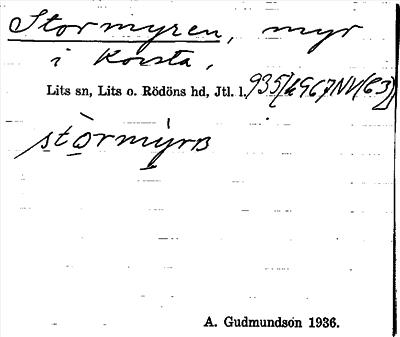 Stormyren, myr
i Korsta,
Lits sn, Lits o. Rödöns hd, Jtl. l.
stòrmýrn
A. Gudmundson 1936.